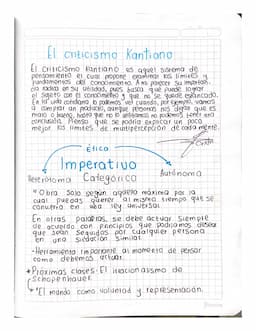 El criticismo Kantiano
El criticismo Kantiano es aquel sistema de
pensamiento el cual propone examinar los límites y
fundamentos del conocimiento. A mi parecer su importan-
cia radica en su utilidad, pues busca que puede lograr
el sujeto con el conocimiento y que no se quede estancado.
En la vida cotidiana lo podemos ver cuando, por ejemplo, vamos
a comprar un producto, aunque personas nos digan que es
malo o bueno, hasta que no lo utilicemos no podremos tener una
conclusión. Pienso que se podría explotar un poco
mejor los límites de multipercepción de cada mente.
Ética
Imperativo
Heterónoma Categórico Autónoma
"Obra solo según aquella máxima por la
cual puedas querer al mismo tiempo que se
convierta en una ley universal.
En otras palabras, se debe actuar siempre
de acuerdo con principios que podríamos desear
que sean seguidos por cualquier persona
en una situación similar.
-Herramienta importante al momento de pensar
como debemos actuar.
Próximas clases: El irracionalismo de
Schopenhauer.
"El mundo como voluntad y representación.